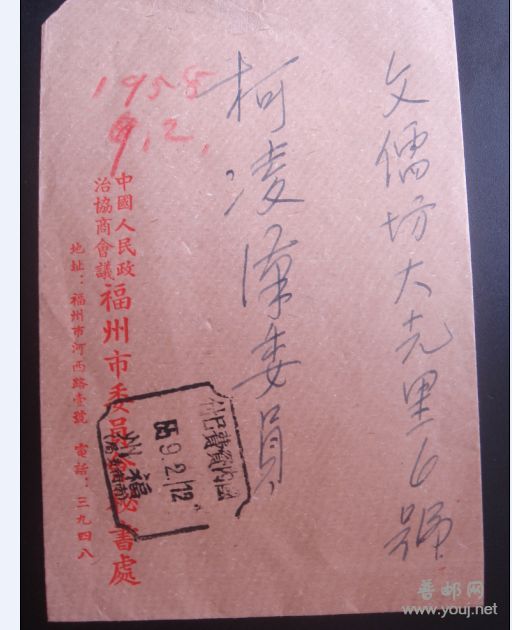 文儒坊大光里6號
柯凌漢委員
1958
9.2.
中國人民政
治協商會議
福州市委員會秘書處
地址：福州市河西路壹號 電話：三九四八
國內資費已付
9.2.12
福州
普邮网
www.youj.net